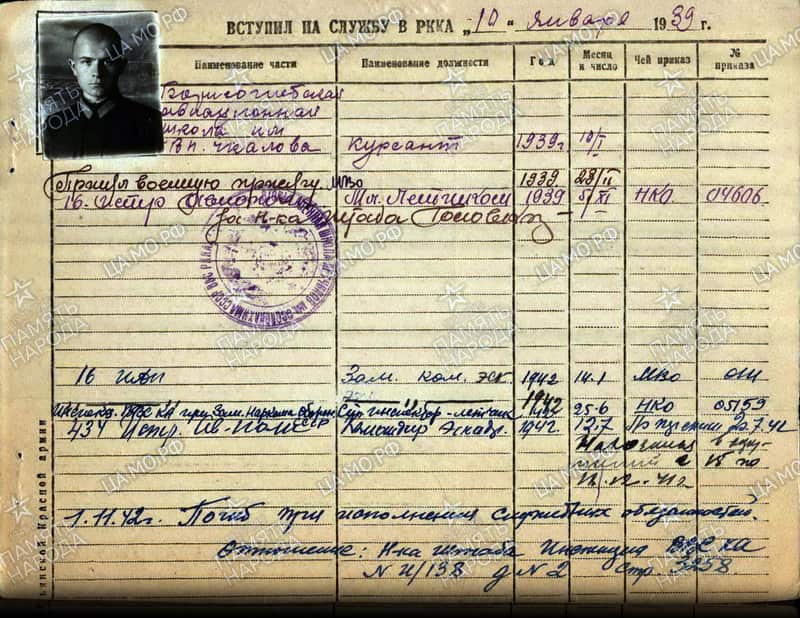 ВСТУПИЛ НА СЛУЖБУ В РККА „10" января 1939 г.
Наименование части Наименование должности Год Месяц и число Чей приказ № приказа
Борисоглебская
авиационная
школа им
В.П. Чкалова Курсант 1939г 10/I
Принял военную присягу 1939 23/II
16. Истр МВО Мл. Летчиком 1939 5/XI НКО 04606
за Н-ка Штаба
16 иап Зам. ком. эск. 1942 14.1 МВО
ВВС КА при Зам. Наркома Обороны СССР инспектор-летчик 1942 25.6 НКО 05159
434 Истр. Ав-полк Командир Эскадр. 1942 12.7
Находился в
с 15 по
12.41г
1.11.42г. Погиб при исполнении служебных обязанностей.
Отношение: Н-ка штаба Инспекции ВВС КА
N И/138 д N 2 стр. 3258.
Красной армии
ПАМЯТЬ НАРОДА
ЦАМО.РФ